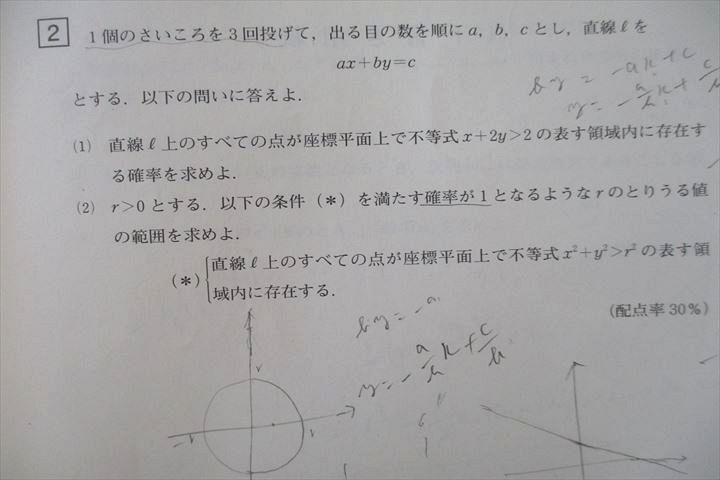 2 1個のさいころを3回投げて,出る目の数を順にa, b, cとし,直線ℓを
ax+by=c
とする.以下の問いに答えよ.
by = -ax + c
y = -a/b x + c/b
(1) 直線ℓ上のすべての点が座標平面上で不等式x+2y>2の表す領域内に存在す
る確率を求めよ.
(2) r>0とする.以下の条件(*)を満たす確率が1となるようなrのとりうる値
の範囲を求めよ.
(*) 直線ℓ上のすべての点が座標平面上で不等式x²+y²>r²の表す領
域内に存在する.
(配点率30%)
by = -a
y = -a/b x + c/b
6
1